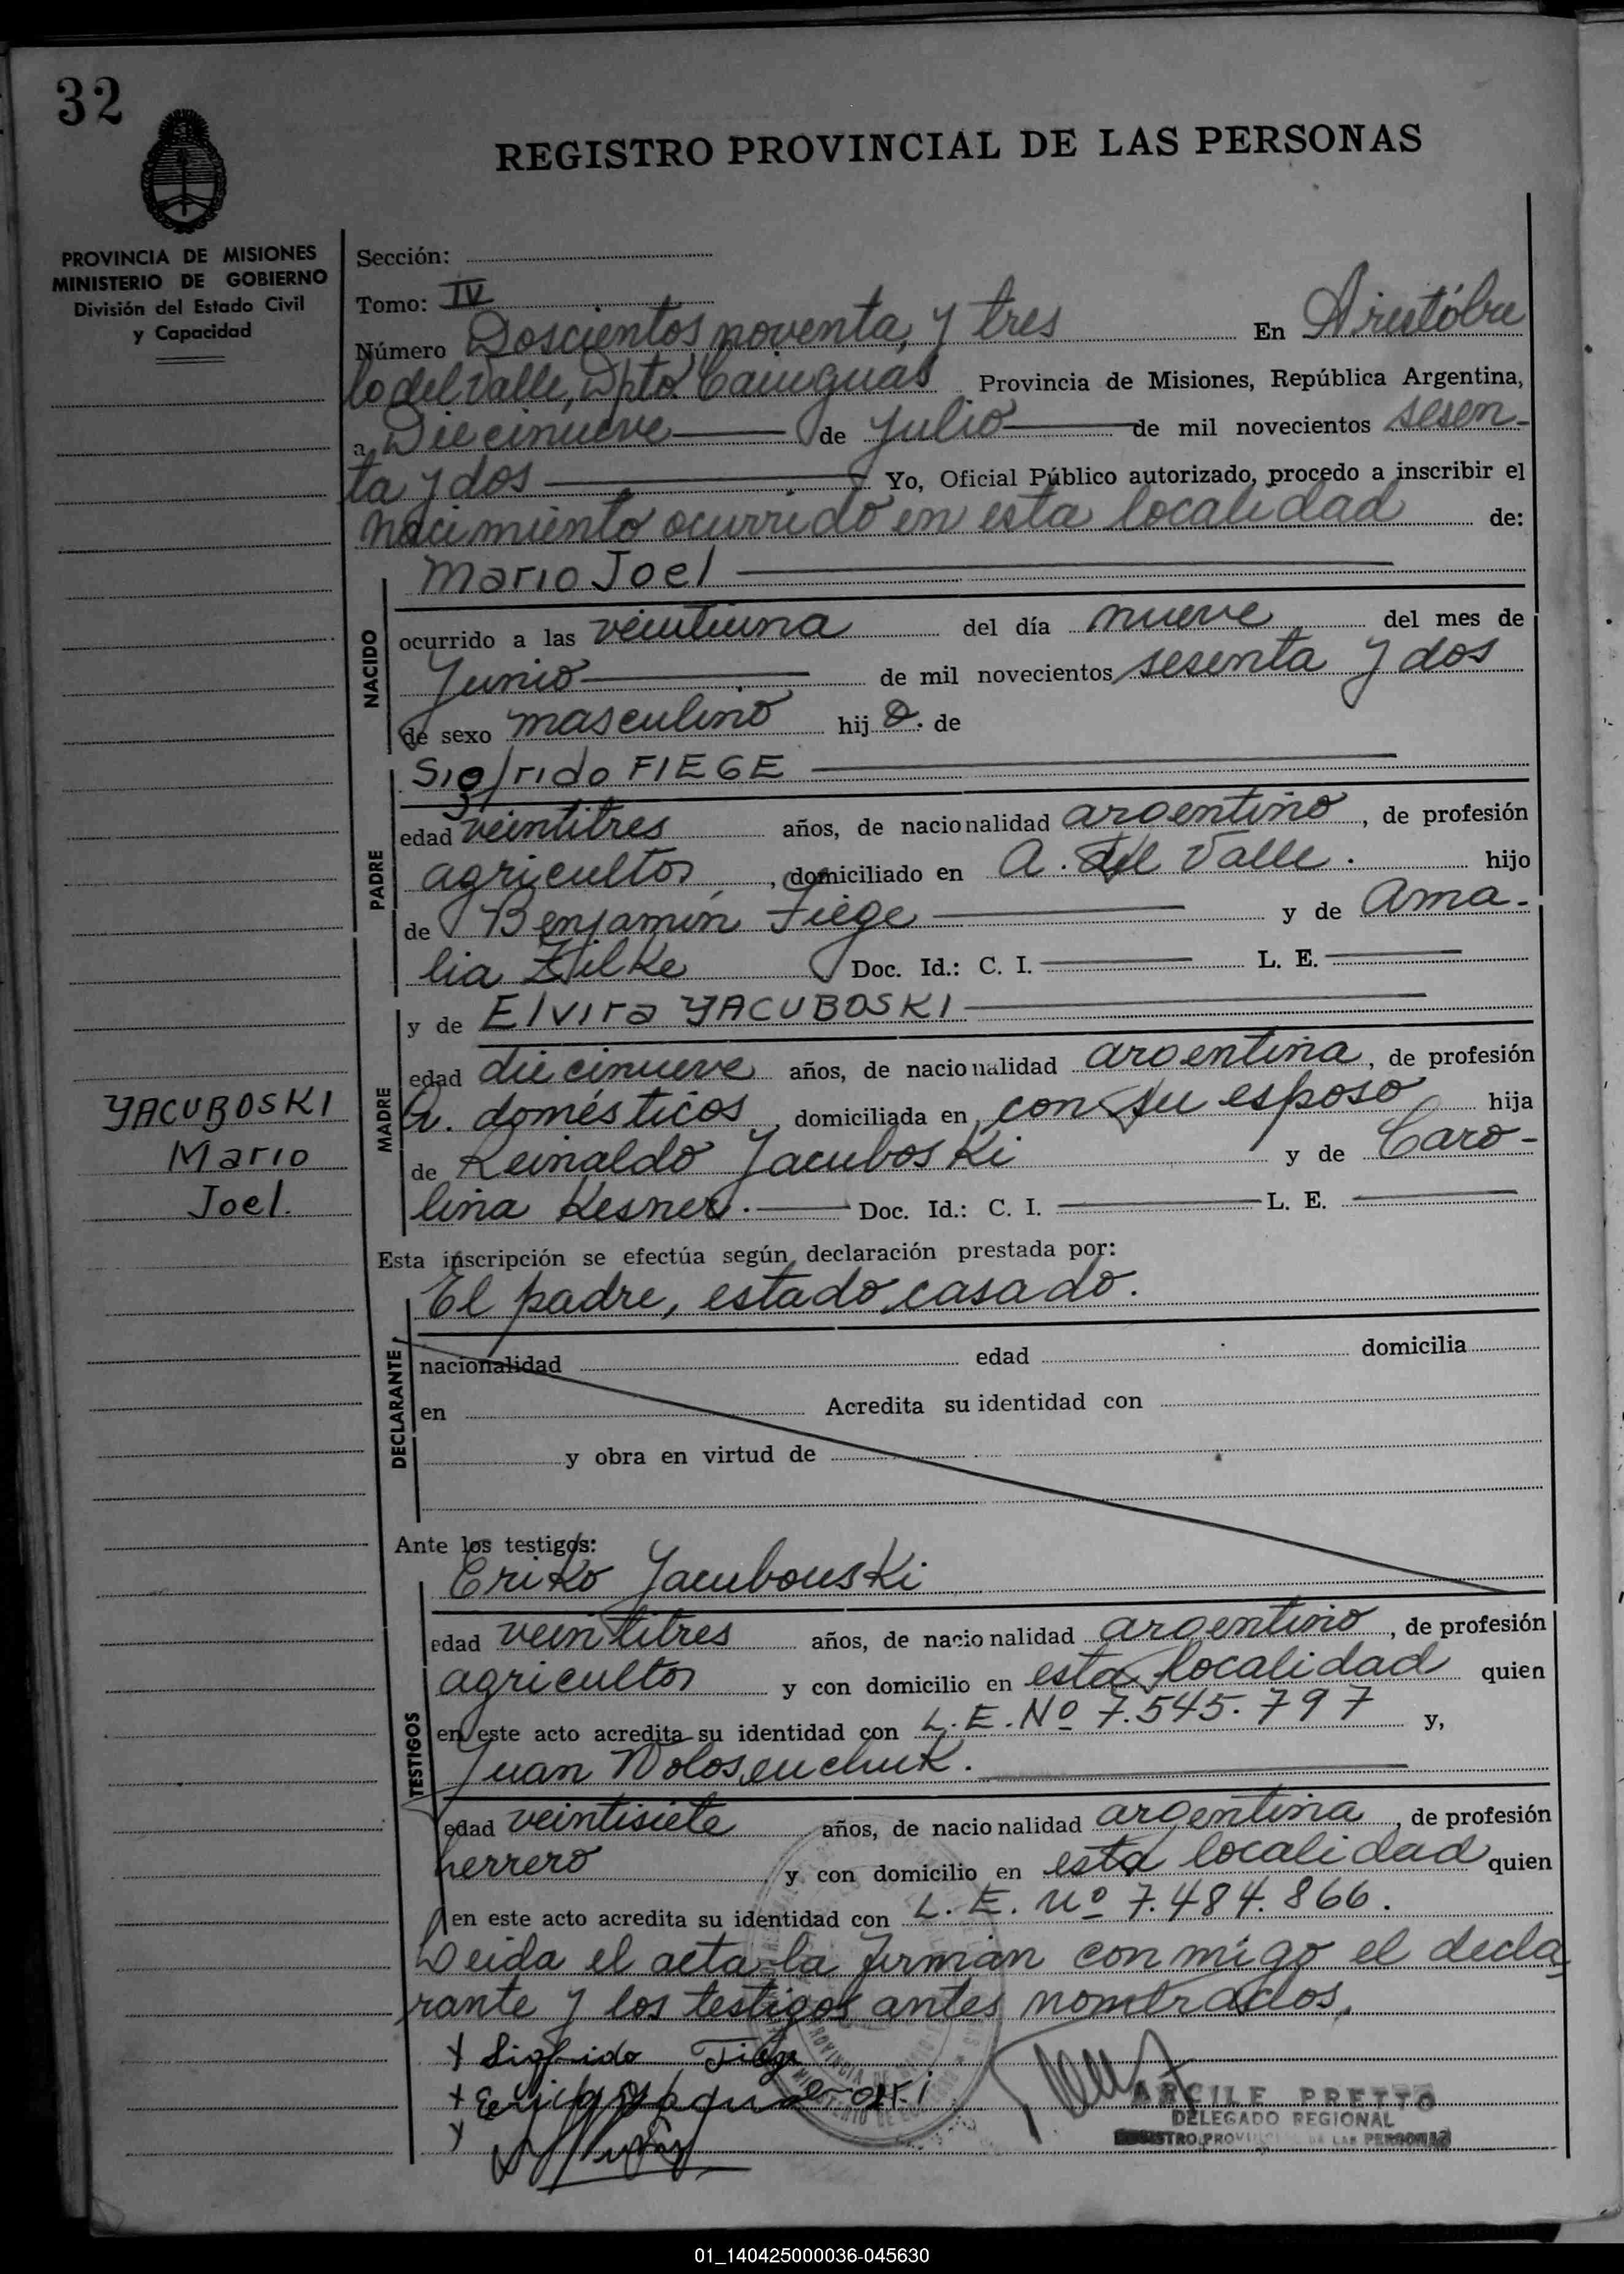 32
REGISTRO PROVINCIAL DE LAS PERSONAS
PROVINCIA DE MISIONES
MINISTERIO DE GOBIERNO
División del Estado Civil
y Capacidad
Sección:
Tomo: IV
Número Doscientos noventa, y tres En Aristóbu
lo del Valle, Dpto. Cainguas Provincia de Misiones, República Argentina,
a Diecinueve de Julio de mil novecientos sesen-
ta y dos Yo, Oficial Público autorizado, procedo a inscribir el
nacimiento ocurrido en esta localidad de:
Mario Joel
NACIDO
ocurrido a las veintiuna del día nueve del mes de
Junio de mil novecientos sesenta y dos
de sexo masculino hijo. de
Sigfrido FIEGE
PADRE
edad veintitres años, de nacionalidad argentino, de profesión
agricultor, domiciliado en A. del Valle. hijo
de Benjamín Fiege y de Ama-
lia Zilke Doc. Id.: C. I. L. E.
MADRE
y de Elvira YACUBOSKI
edad diecinueve años, de nacionalidad argentina, de profesión
Q. domésticos, domiciliada en con su esposo hija
de Reinaldo Jacuboski y de Caro-
lina Kesner. Doc. Id.: C. I. L. E.
YACUBOSKI
Mario
Joel.
Esta inscripción se efectúa según declaración prestada por:
El padre, estado casado.
DECLARANTE
nacionalidad edad domicilia
en Acredita su identidad con
y obra en virtud de
Ante los testigos:
Eriko Jacubouski
TESTIGOS
edad veintitres años, de nacionalidad argentino, de profesión
agricultor y con domicilio en esta localidad quien
en este acto acredita su identidad con L. E. Nº 7.545.797 y,
Juan Wolosenchuk.
edad veintisiete años, de nacionalidad argentina, de profesión
herrero y con domicilio en esta localidad quien
en este acto acredita su identidad con L. E. Nº 7.484.866.
Leida el acta la firman conmigo el decla
rante y los testigos antes nombrados.
x Sigfrido Fiege
ARCILE PRETTO
DELEGADO REGIONAL
REGISTRO PROVINCIAL DE LAS PERSONAS
01_140425000036-045630